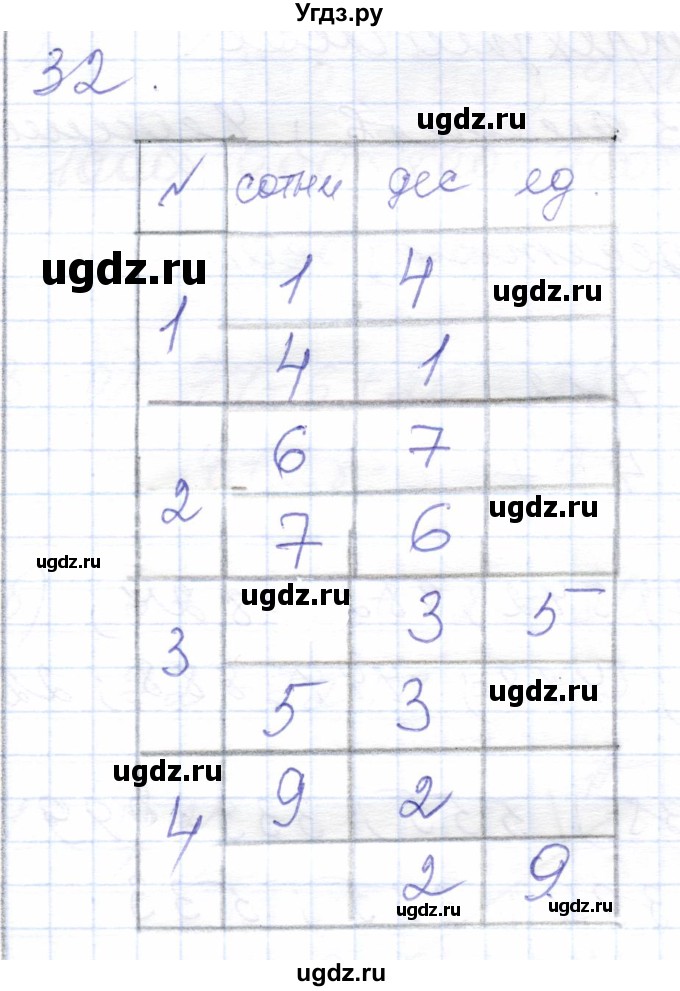 Угдз.ру
32.
ugdz.ru
№ сотни дес ед.
ugdz.ru
1 4
ugdz.ru
1
4 1
6 7
2
ugdz.ru
7 6
ugdz.ru
ugdz.ru
3 5
3
5 3
ugdz.ru
ugdz.ru
9 2
4
2 9
ugdz.ru
ugdz.ru
ugdz.ru